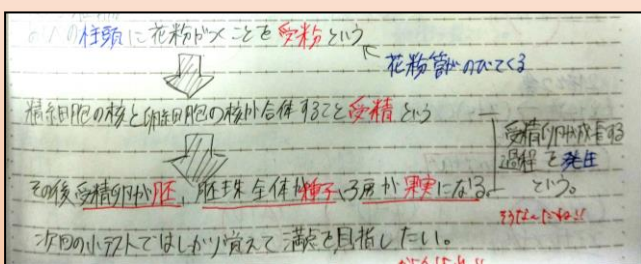 の柱頭に花粉がつくことを受粉という
花粉管がのびてくる
精細胞の核と卵細胞の核が合体すること受精という
受精卵が成長する
過程を発生
という。
その後受精卵が胚、胚珠全体が種子、子房が果実になる。
そうなんだね!!
次回の小テストではしっかり覚えて満点を目指したい。